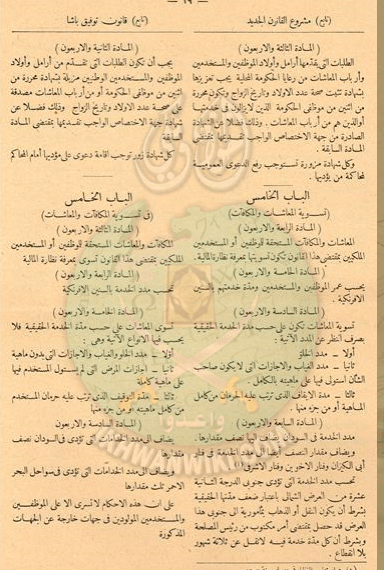 — ٦٩ —
(تابع) مشروع القانون الجديد
(المادة الثالثة والاربعون)
الطلبات التى يقدمها أرامل وأولاد الموظفين والمستخدمين
وأرباب المعاشات من رعايا الحكومة المحلية يجب تعزيزها
بشهادة تثبت صحة عدد الاولاد وتاريخ الزواج وتكون محررة
من اثنين من موظفى الحكومة الذين لايزالون فى خدمتها
أوالذين هم من أرباب المعاشات . وذلك فضلا عن الشهادة
الصادرة من جهة الاختصاص الواجب تقديمها بمقتضى
المادة السابقة .
وكل شهادة مزورة تستوجب رفع الدعوى العمومية
محاكمة من يؤديها .
الباب الخامس
(تسوية المعاشات والمكافآت)
(المادة الرابعة والاربعون)
المعاشات والمكافآت المستحقة للموظفين أو المستخدمين
الملكيين بمقتضى هذا القانون تكون تسويتها بمعرفة نظارة المالية .
(المادة الخامسة والاربعون)
يحسب عمر الموظفين والمستخدمين ومدة خدمتهم بالسنين
الافرنكية .
(المادة السادسة والاربعون)
تسوية المعاشات تكون على حسب مدة الخدمة الحقيقية
بصرف النظر عن المدد الآتية :
أولا — مدد الخلو
ثانيا — مدد الغياب والاجازات التى لا يكون صاحب
الشأن استولى فيها على ماهيته بالكامل .
ثالثا — مدد الايقاف الذى ترتب عليه الحرمان من كامل
الماهية أو من جزء منها
(المادة السابعة والاربعون)
مدد الخدمة فى السودان يضاف اليها نصف مقدارها .
ويضاف مقدار النصف أيضا الى مدد الخدمة فى فنار
أبى الكيزان وفنار الاخوين وفنار الاشرفى
تحسب مدد الخدمة التى تؤدى جنوبى الدرجة الثانية
عشرة من العرض الشمالى باعتبار ضعف مدتها الحقيقية
بشرط أن يكون النقل أو الذهاب بمأمورية الى جنوبى هذا
العرض قد حصل بمقتضى أمر مكتوب من رئيس المصلحة
وبشرط أن كل مدة خدمة فيه لا تقل عن ثلاثة شهور
بلا انقطاع .
(تابع) قانون توفيق باشا
(المادة الثانية والاربعون)
يجب أن تكون الطلبات التى تقدم من أرامل وأولاد
الموظفين والمستخدمين الوطنيين مرفقة بشهادة محررة من
اثنين من موظفى الحكومة أو من أرباب المعاشات مصدقة
على صحة عدد الاولاد وتاريخ الزواج وذلك فضلا عن
شهادة جهة الاختصاص الواجب تقديمها بمقتضى المادة
السابقة
وكل شهادة زور توجب اقامة دعوى على مؤديها أمام المحاكم
الباب الخامس
(فى تسوية المكافآت والمعاشات)
(المادة الثالثة والاربعون)
المكافآت والمعاشات المستحقة للموظفين أو المستخدمين
الملكيين بمقتضى هذا القانون تسوى بمعرفة نظارة المالية
(المادة الرابعة والاربعون)
تحسب مدد الخدمة بالسنين الافرنكية
(المادة الخامسة والاربعون)
تسوى المعاشات على حسب مدة الخدمة الحقيقية فلا
يحسب فيها الانواع الآتية وهى :
أولا — مدد الخلو والغياب والاجازات التى بدون ماهية
ثانيا — أجازات المرض التى لم يستول المستخدم فيها
على ماهية كاملة
ثالثا — مدد التوقيف الذى ترتب عليه حرمان المستخدم
من كامل ماهيته أو من جزء منها
(المادة السادسة والاربعون)
يضاف الى مدد الخدامات التى تؤدى فى السودان نصف
مقدارها
ويضاف الى مدد الخدامات التى تؤدى فى سواحل البحر
الاحمر ثلث مقدارها
على ان هذه الاحكام لا تسرى الا على الموظفين
والمستخدمين المولودين فى جهات خارجة عن الجهات
المذكورة